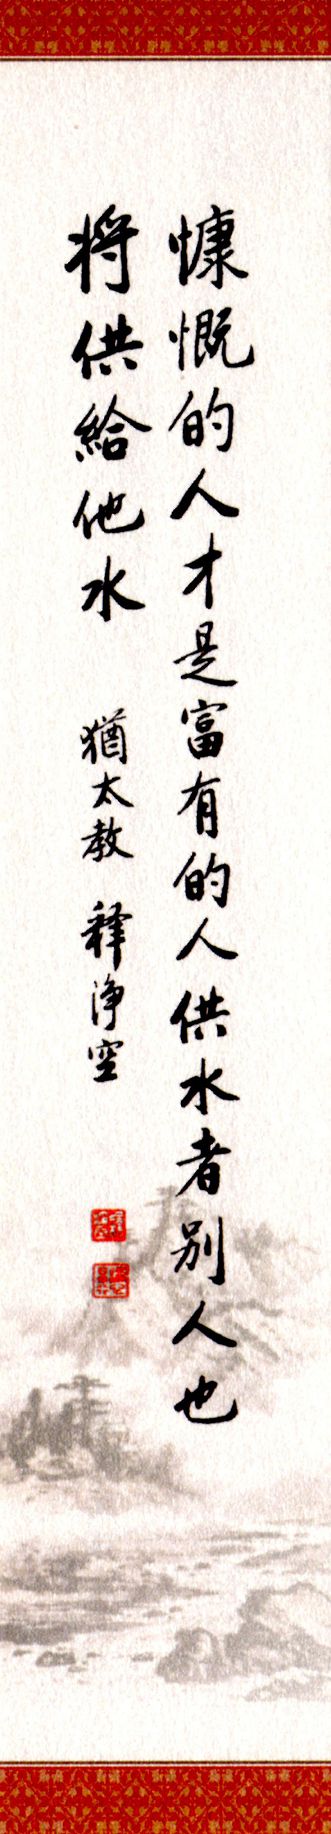 慷慨的人才是富有的人供水者别人也
将供給他水 猶太教 释淨空